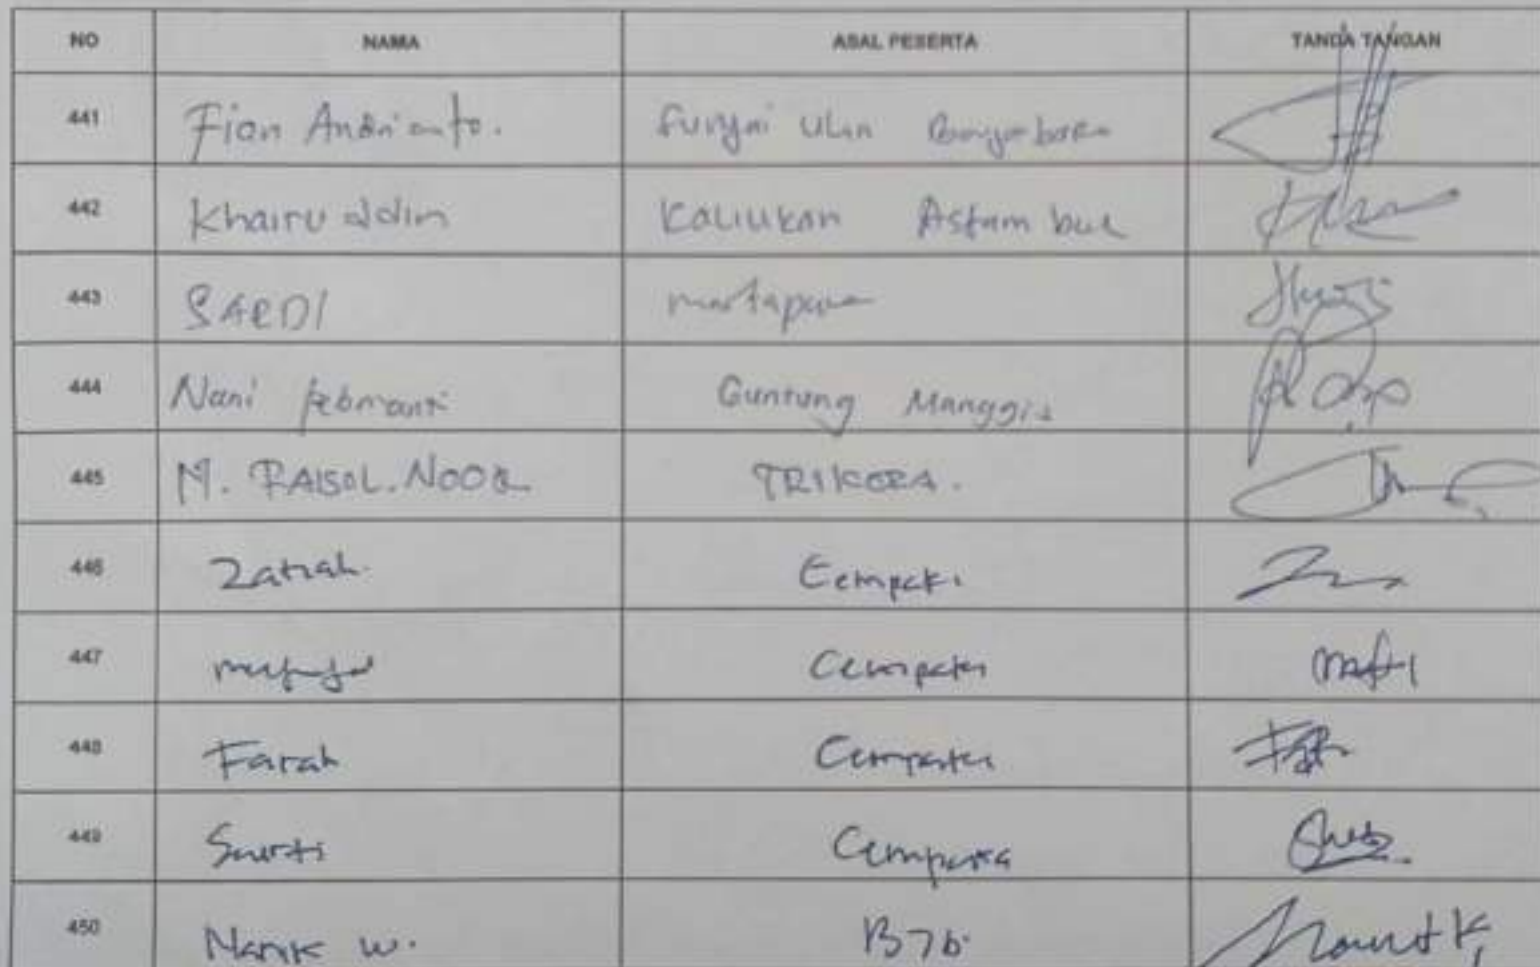 NO NAMA ASAL PESERTA TANDA TANGAN
441 Fian Andrianto. Sungai Ulin Banjarbaru
442 Khairuddin Kaliukan Astambul
443 SARDI martapura
444 Nani Febrianti Guntung Manggis
445 M. FAISOL. NOOR TRIKORA.
446 Zatiah. Cempaka
447 Cempaka
448 Farah Cempaka
449 Cempaka
450 Nanik W.